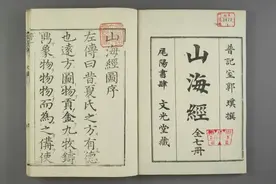 晉記室郭璞撰
山海經 全七冊
尾陽書肆 文光堂藏
山海經圖序
左傳曰昔夏氏之方有德
也遠方圖物貢金九牧鑄
鼎象物物而為之備使